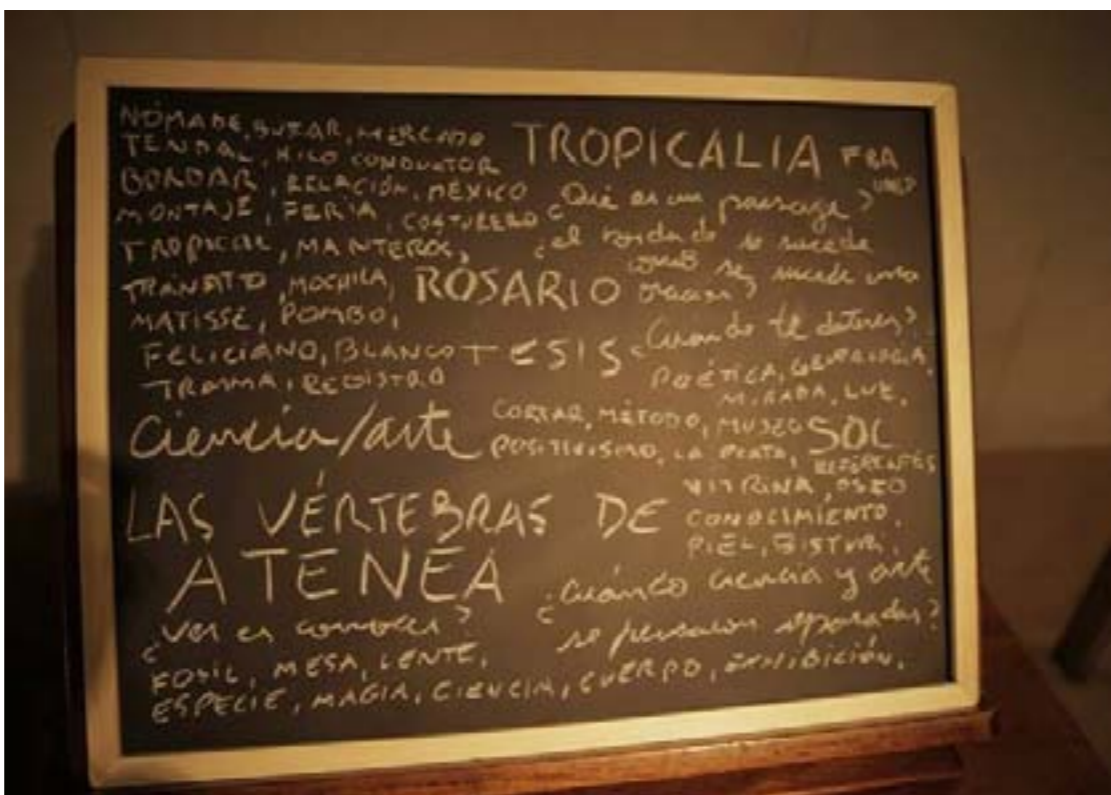 NÓMADE, BUZAR, MERCADO
TENDAL, HILO CONDUCTOR
BORDAR, RELACIÓN, MÉXICO
MONTAJE, FERIA, COSTURERO
TROPICAL, MANTEROS,
TRÁNSITO, MOCHILA,
MATISSE, POMBO,
FELICIANO, BLANCO
TRAMA, REGISTRO
TROPICALIA FBA
UNLP
¿Qué es un paisaje?
¿el bordado se sucede
como se sucede una
ROSARIO
TESIS
¿Cuando te detenes?
POÉTICA, GENEALOGIA,
MIRADA, LUZ,
Ciencia/arte
CORTAR, MÉTODO, MUSEO
POSITIVISMO, LA PLATA,
SOL
REFERENTES
VITRINA, OSEO
CONOCIMIENTO,
PIEL, BISTURI,
LAS VÉRTEBRAS DE
ATENEA
¿Cuándo ciencia y arte
se pensaron separadas?
¿Ver es conocer?
FOSIL, MESA, LENTE,
ESPECIE, MAGIA, CIENCIA, CUERPO, EXHIBICIÓN,